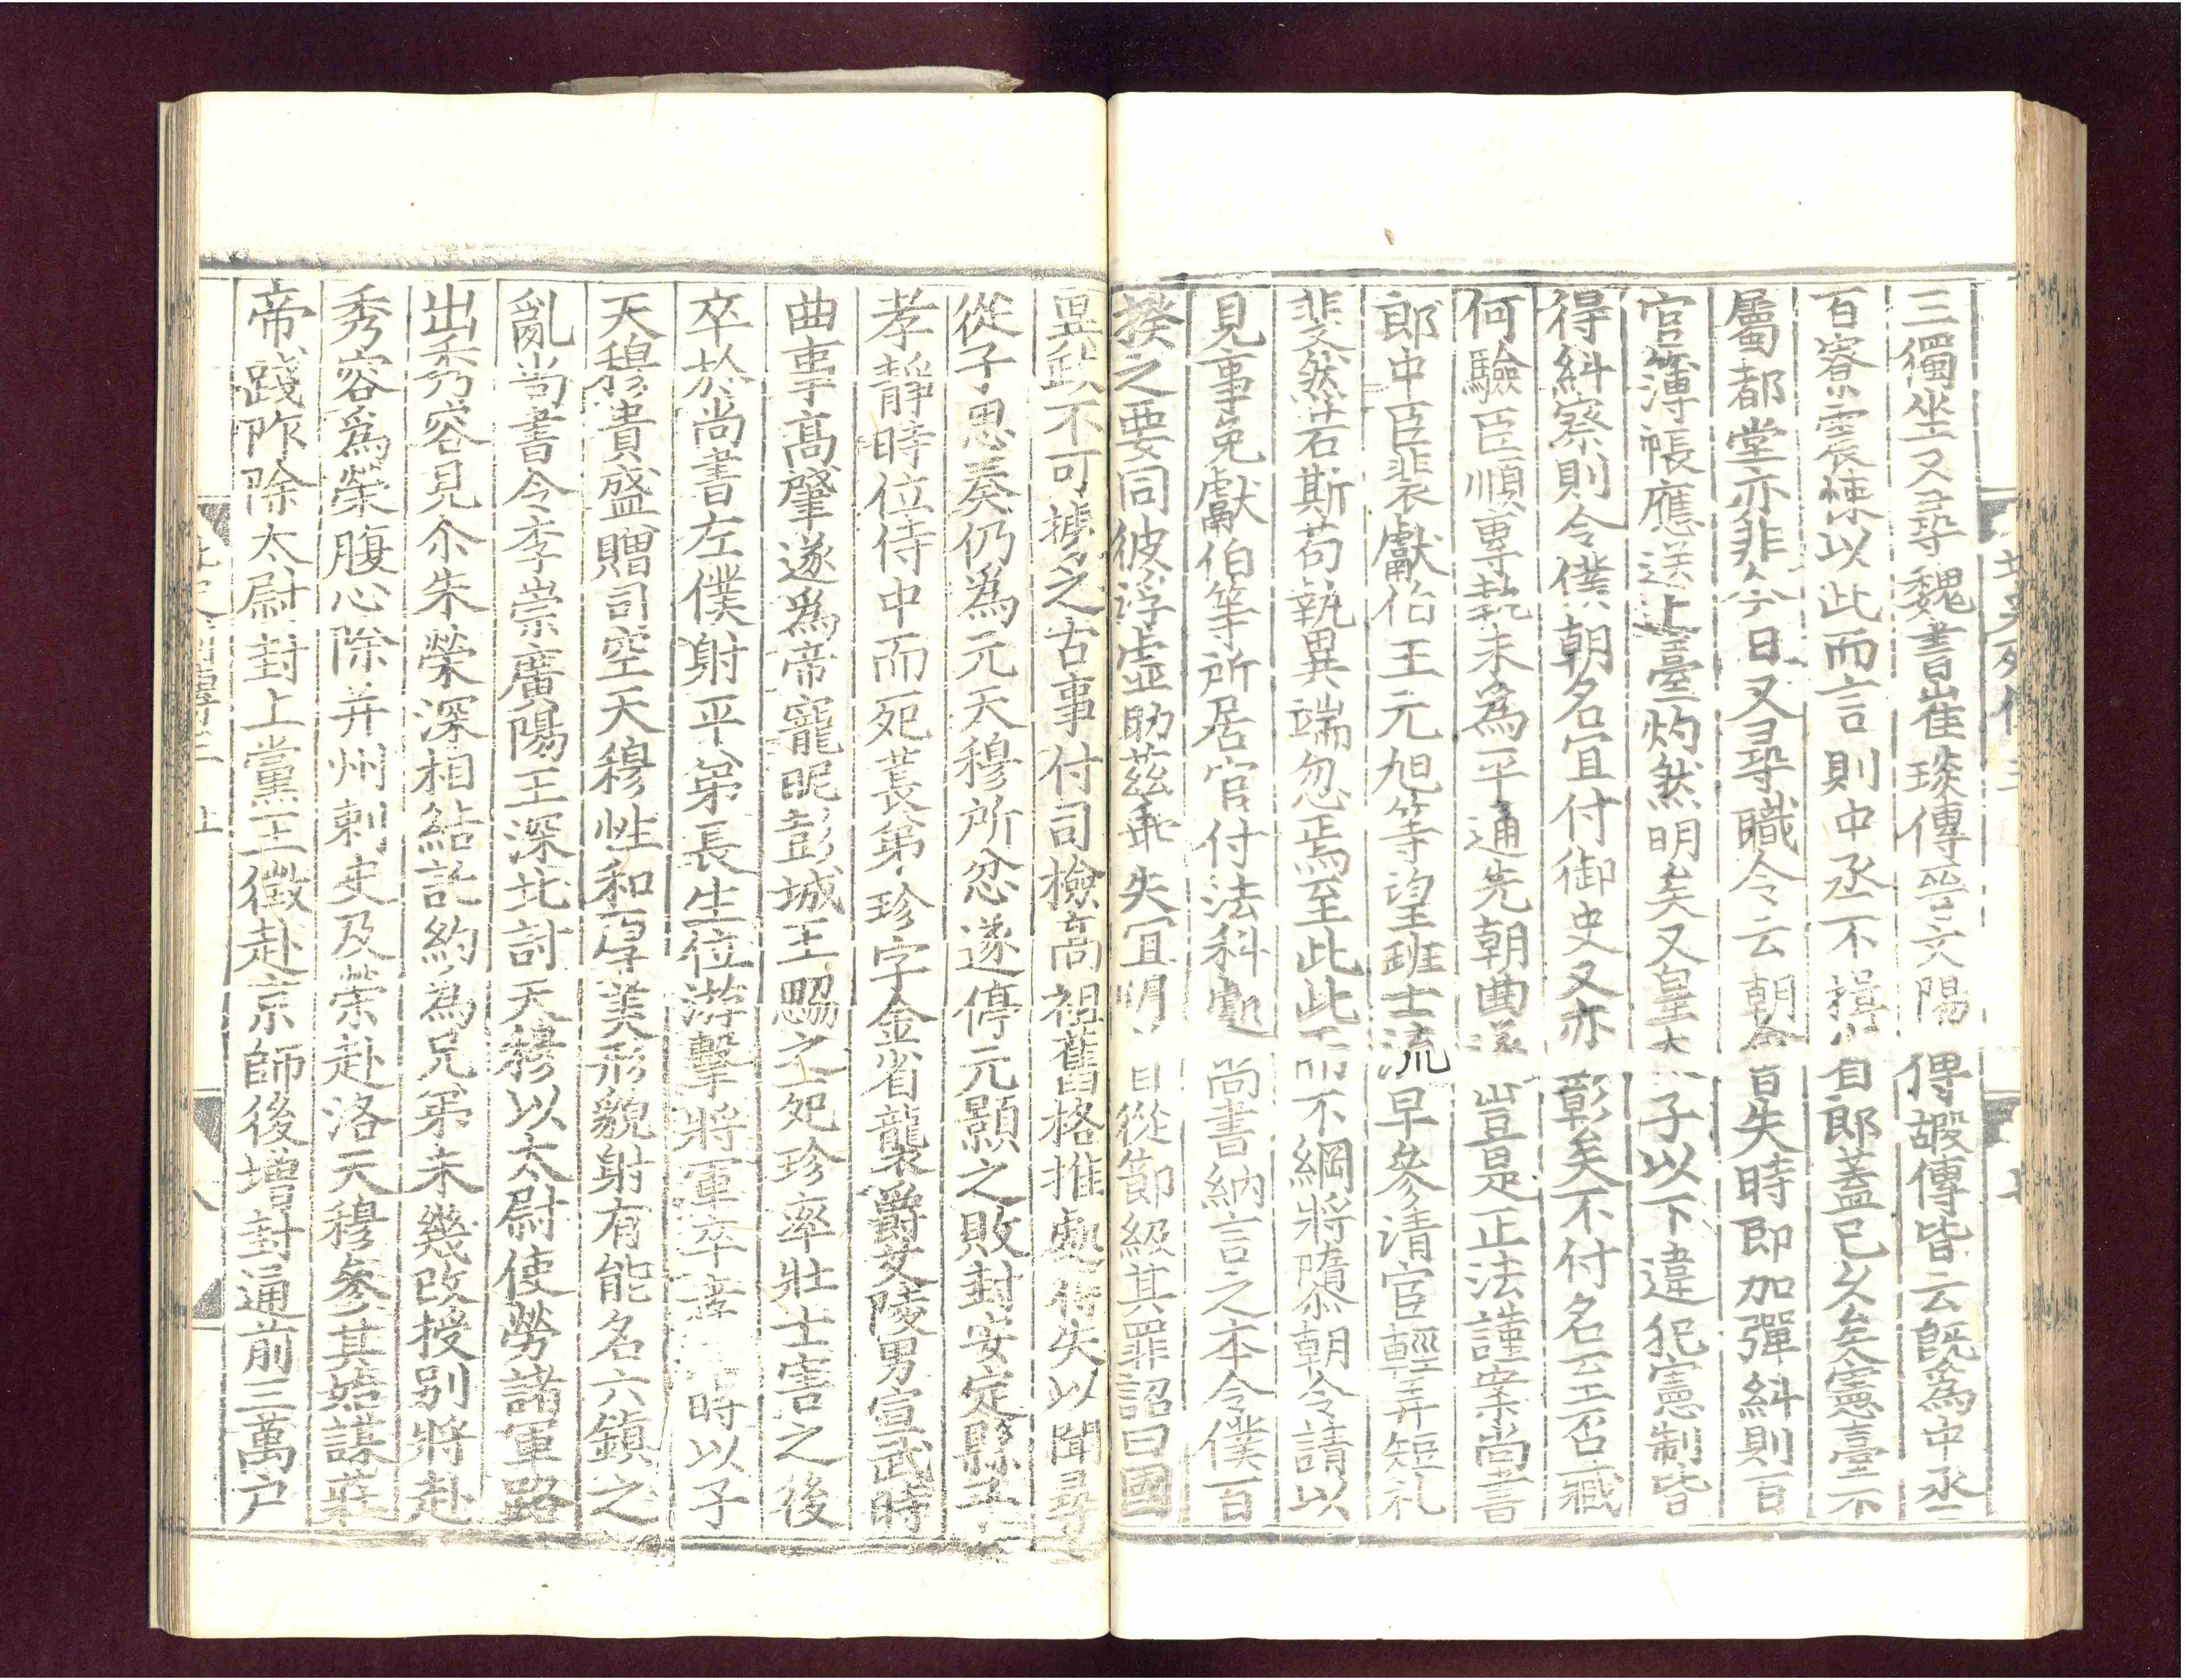 三獨坐又尋魏書崔琰傳晉文陽傅嘏傳皆云旣爲中丞
百寮震悚以此而言則中丞不揖省郎蓋已久矣憲臺不
屬都堂亦非今日又尋職令云朝會百失時即加彈糾則百
官簿帳應送上臺灼然明矣又皇太子以下違犯憲制皆
得糾察則令僕朝名宜付御史又亦彰矣不付名至否臧
何驗臣順專執未爲平通先朝曲遂豈是正法謹案尚書
郎中臣裴獻伯王元旭等望班士流早參清宦輕弄短札
斐然若斯苟執異端忽焉至此此而不綱將隳朝令請以
見事免獻伯等所居官付法科處尚書納言之本令僕百
揆之要同彼浮虛助茲乖失宜明 自從節級其罪詔曰國
異政不可據之古事付司檢高祖舊格推處得失以聞尋
從子思奏仍爲元天穆所忿遂停元顥之敗封安定縣子
孝靜時位侍中而死萇弟珍字金省襲爵艾陵男宣武時
曲事高肇遂爲帝寵昵彭城王勰之死珍率壯士害之後
卒於尚書左僕射平弟長生位游擊將軍卒 時以子
天穆貴盛贈司空天穆性和厚美形貌射有能名六鎮之
亂尚書令李崇廣陽王深北討天穆以太尉使勞諸軍路
出秀容見尒朱榮深相結託約爲兄弟未幾改授別將赴
秀容爲榮腹心除并州刺史及榮赴洛天穆參其始謀莊
帝踐阼除太尉封上黨王徵赴京師後增封通前三萬户